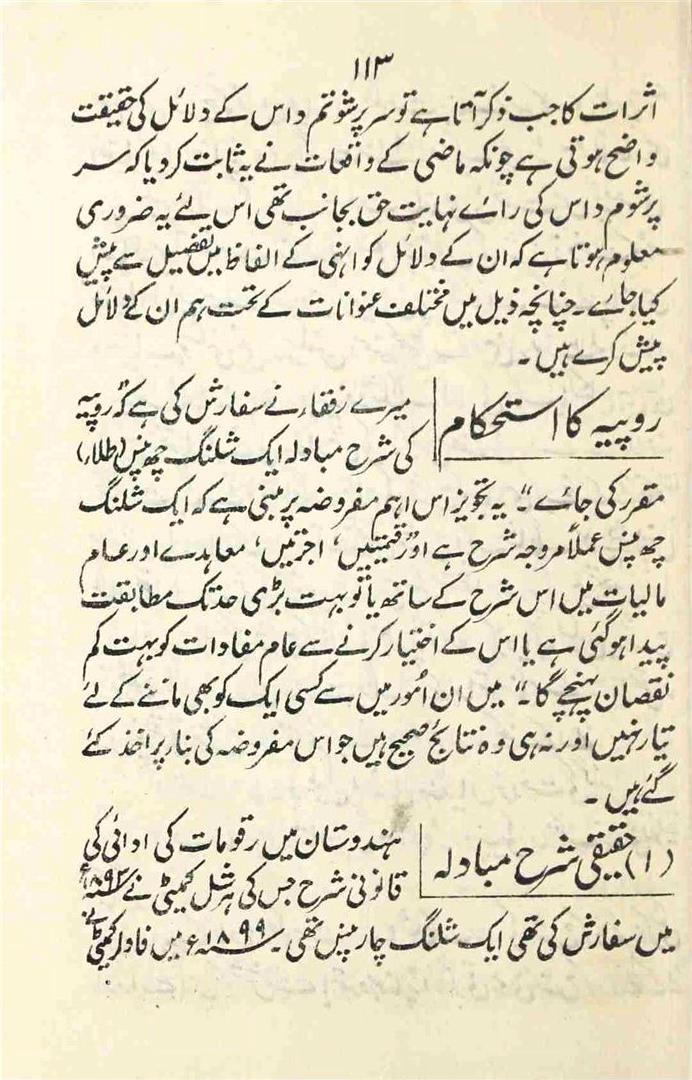 ۱۱۳
اثرات کا جب ذکر آتا ہے تو سر پرشوتم داس کے دلائل کی حقیقت
واضح ہوتی ہے چونکہ ماضی کے واقعات نے یہ ثابت کردیا کہ سر
پرشوم داس کی رائے نہایت حق بجانب تھی اس لئے یہ ضروری
معلوم ہوتا ہے کہ ان کے دلائل کو انہی کے الفاظ میں تفصیل سے پیش
کیا جائے۔ چنانچہ ذیل میں مختلف عنوانات کے تحت ہم ان کے دلائل
پیش کرے ہیں ۔
روپیہ کا استحکام
میرے رفقاء نے سفارش کی ہے کہ "روپیہ
کی شرح مبادلہ ایک شلنگ چھ پنس (طلاء)
مقرر کی جائے"۔ یہ تجویز اس اہم مفروضہ پر مبنی ہے کہ ایک شلنگ
چھ پنس عملاً مروجہ شرح ہے اور "قیمتیں، اجرتیں، معاہدے اور عام
مالیات میں اس شرح کے ساتھ یا تو بہت بڑی حد تک مطابقت
پیدا ہوگئی ہے یا اس کے اختیار کرنے سے عام مفادات کو بہت کم
نقصان پہنچے گا۔" میں ان اُمور میں سے کسی ایک کو بھی ماننے کے لئے
تیار نہیں اور نہ ہی وہ نتائج صحیح ہیں جو اس مفروضہ کی بنار پر اخذ کئے
گئے ہیں ۔
(۱) حقیقی شرح مبادلہ
ہندوستان میں رقومات کی ادائی کی
قانونی شرح جس کی ہرشل کمیٹی نے ۱۸۹۲ء
میں سفارش کی تھی ایک شلنگ چار پنس تھی۔ ۱۸۹۹ء میں فاولر کمیٹی نے